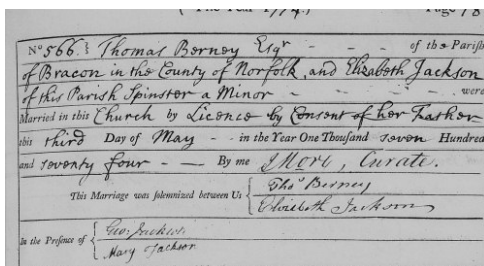 (The Year 1774.) Page 78
No 566.} Thomas Berney Esqr - - - of the Parish
of Bracon in the County of Norfolk, and Elizabeth Jackson
of this Parish Spinster a Minor - - - - were
Married in this Church by Licence by Consent of her Father
this third Day of May - - in the Year One Thousand seven Hundred
and seventy four - - By me J More, Curate.
This Marriage was solemnized between Us { Thos Berney
Elizabeth Jackson
In the Presence of { Geo: Jackson
Mary Jackson